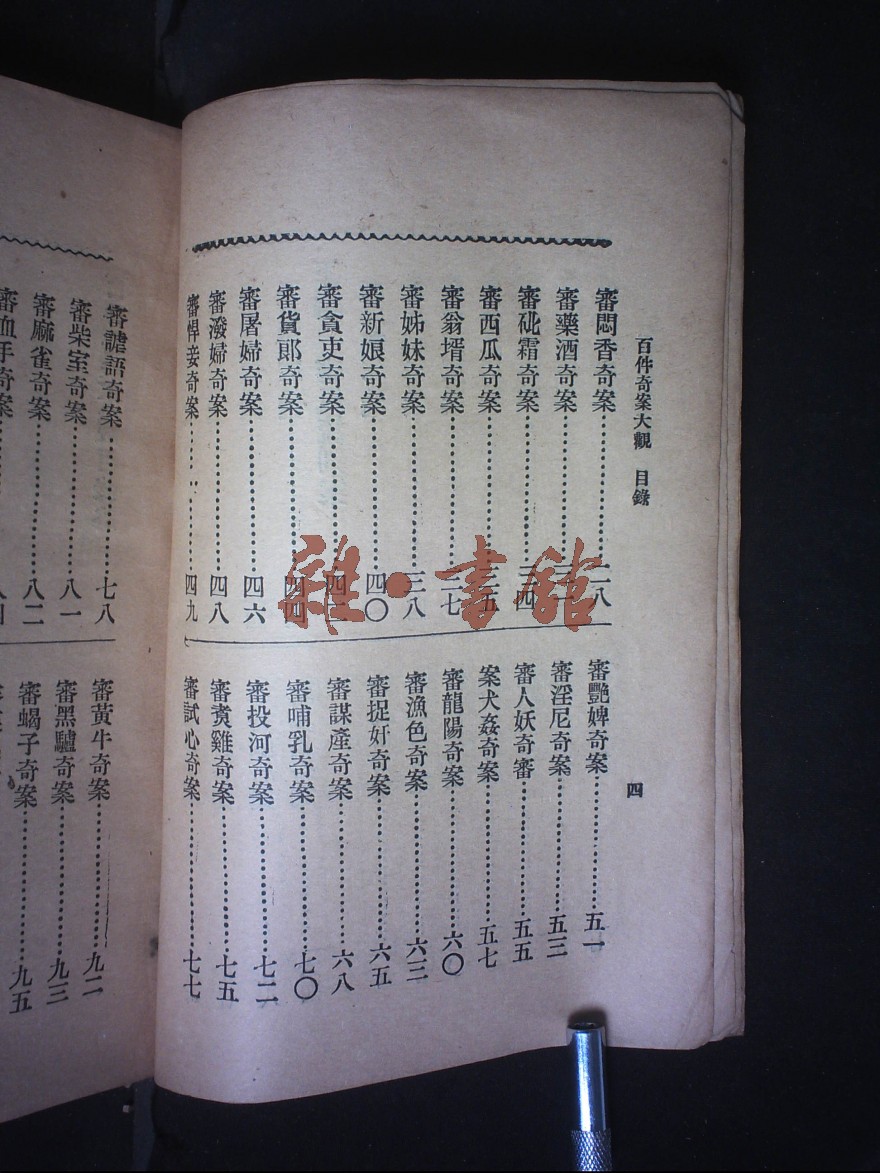 百件奇案大觀 目錄
四
審悶香奇案 二八
審藥酒奇案 三一
審砒霜奇案 三四
審西瓜奇案 三五
審翁壻奇案 三七
審姊妹奇案 三八
審新娘奇案 四〇
審貪吏奇案 四二
審貨郞奇案 四四
審屠婦奇案 四六
審潑婦奇案 四八
審悍妾奇案 四九
審艷婢奇案 五一
審淫尼奇案 五三
審人妖奇審 五五
案犬姦奇案 五七
審龍陽奇案 六〇
審漁色奇案 六三
審捉奸奇案 六五
審謀產奇案 六八
審哺乳奇案 七〇
審投河奇案 七二
審煑雞奇案 七五
審試心奇案 七七
審謔語奇案 七八
審柴室奇案 八一
審麻雀奇案 八二
審血手奇案
審黃牛奇案 九二
審黑驢奇案 九三
審蝎子奇案 九五
雜·書館